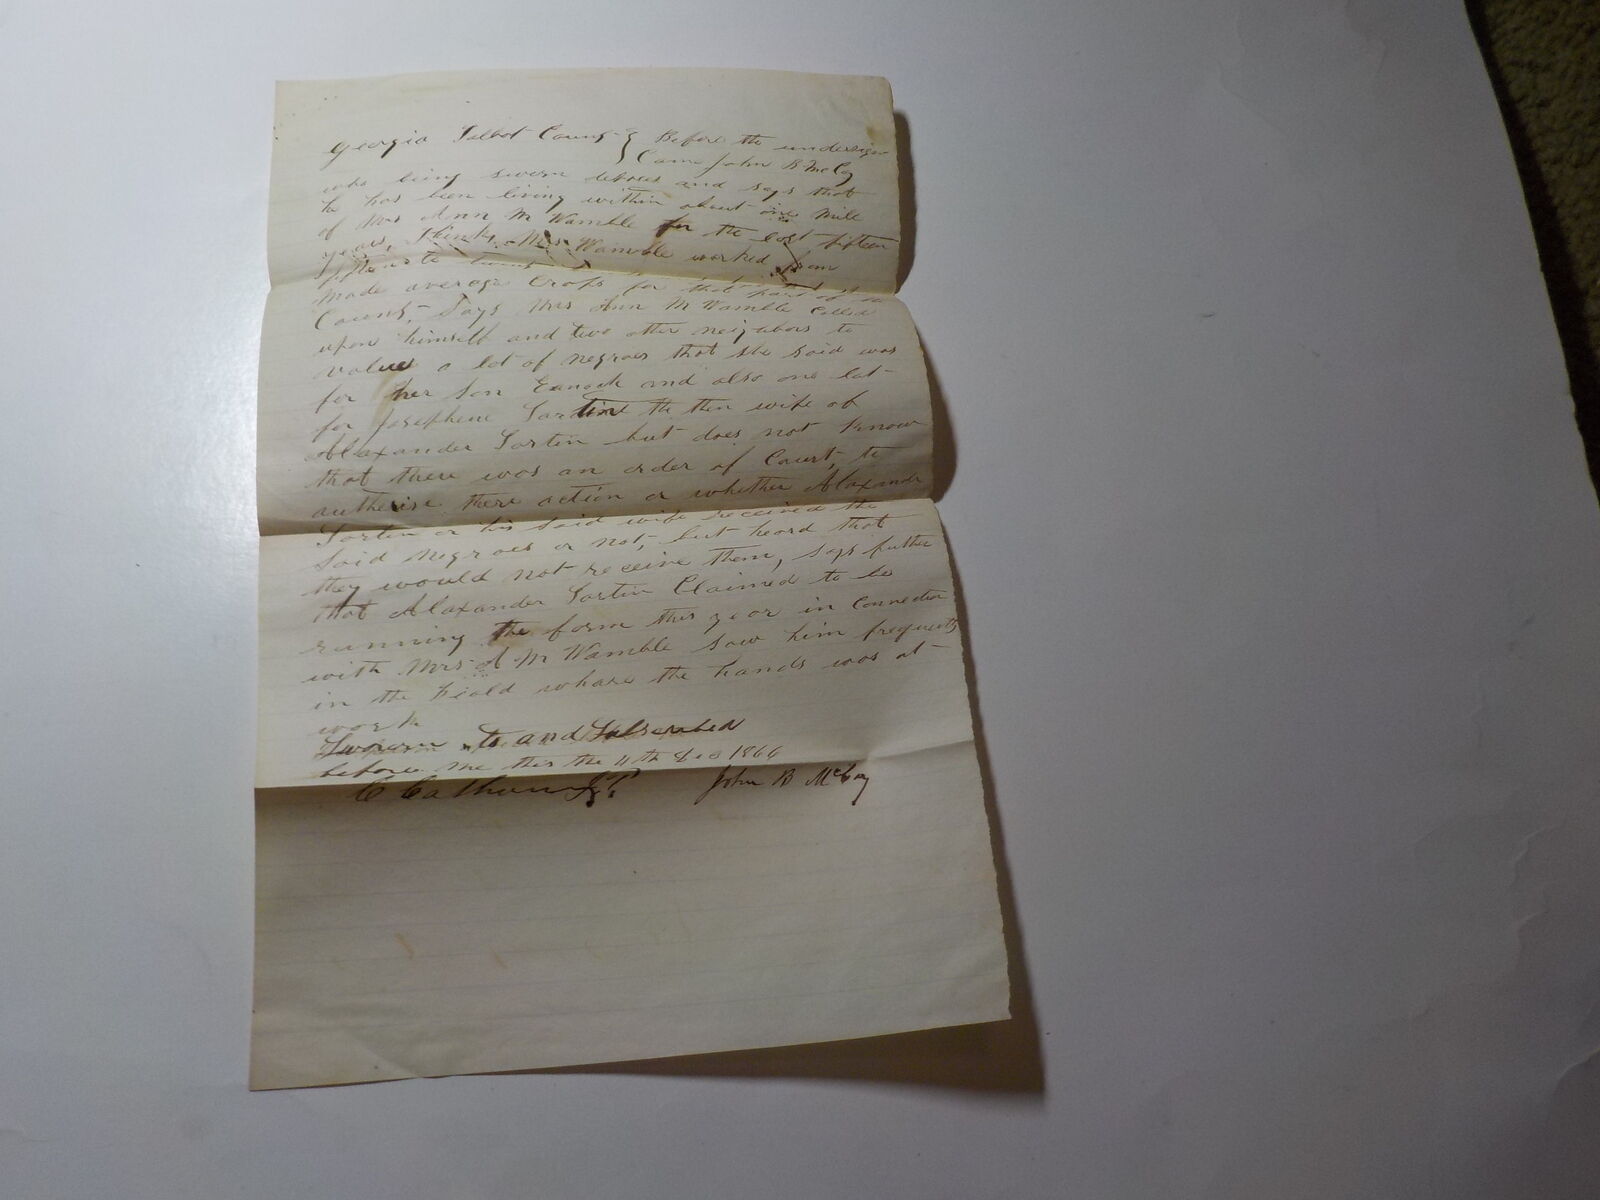 Georgia Talbot County } Before the undersign
} Came John B McCoy
who being sworn deposes and says that
he has been living within about one Mile
of Mrs Ann M Wamble for the last fifteen
years, thinks Mrs Wamble worked from
to
made average Crops for that part of the
County, Says Mrs Ann M Wamble Called
upon himself and two other neighbors to
value a lot of negroes that she said was
for her Son Eanoch and also one lot
for Josephene Sartin the then wife of
Alaxander Sartin but does not know
that there was an order of Court, to
autherise there action or whether Alaxander
Sartin or his said wife received the
said negroes or not, but heard that
they would not receive them, says further
that Alaxander Sartin Claimed to be
running the farm this year in Connection
with Mrs A M Wamble saw him frequently
in the field whare the hands was at
work
Sworn to and Subscribed
before me this the 11th Dec 1866
C Calhoun JP John B McCoy